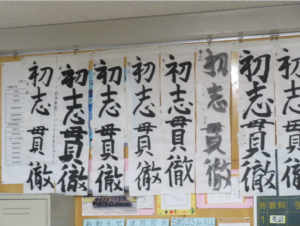 初志貫徹
初志貫徹
初志貫徹
初志貫徹
初志貫徹
初志貫徹
初志貫徹
初志貫徹